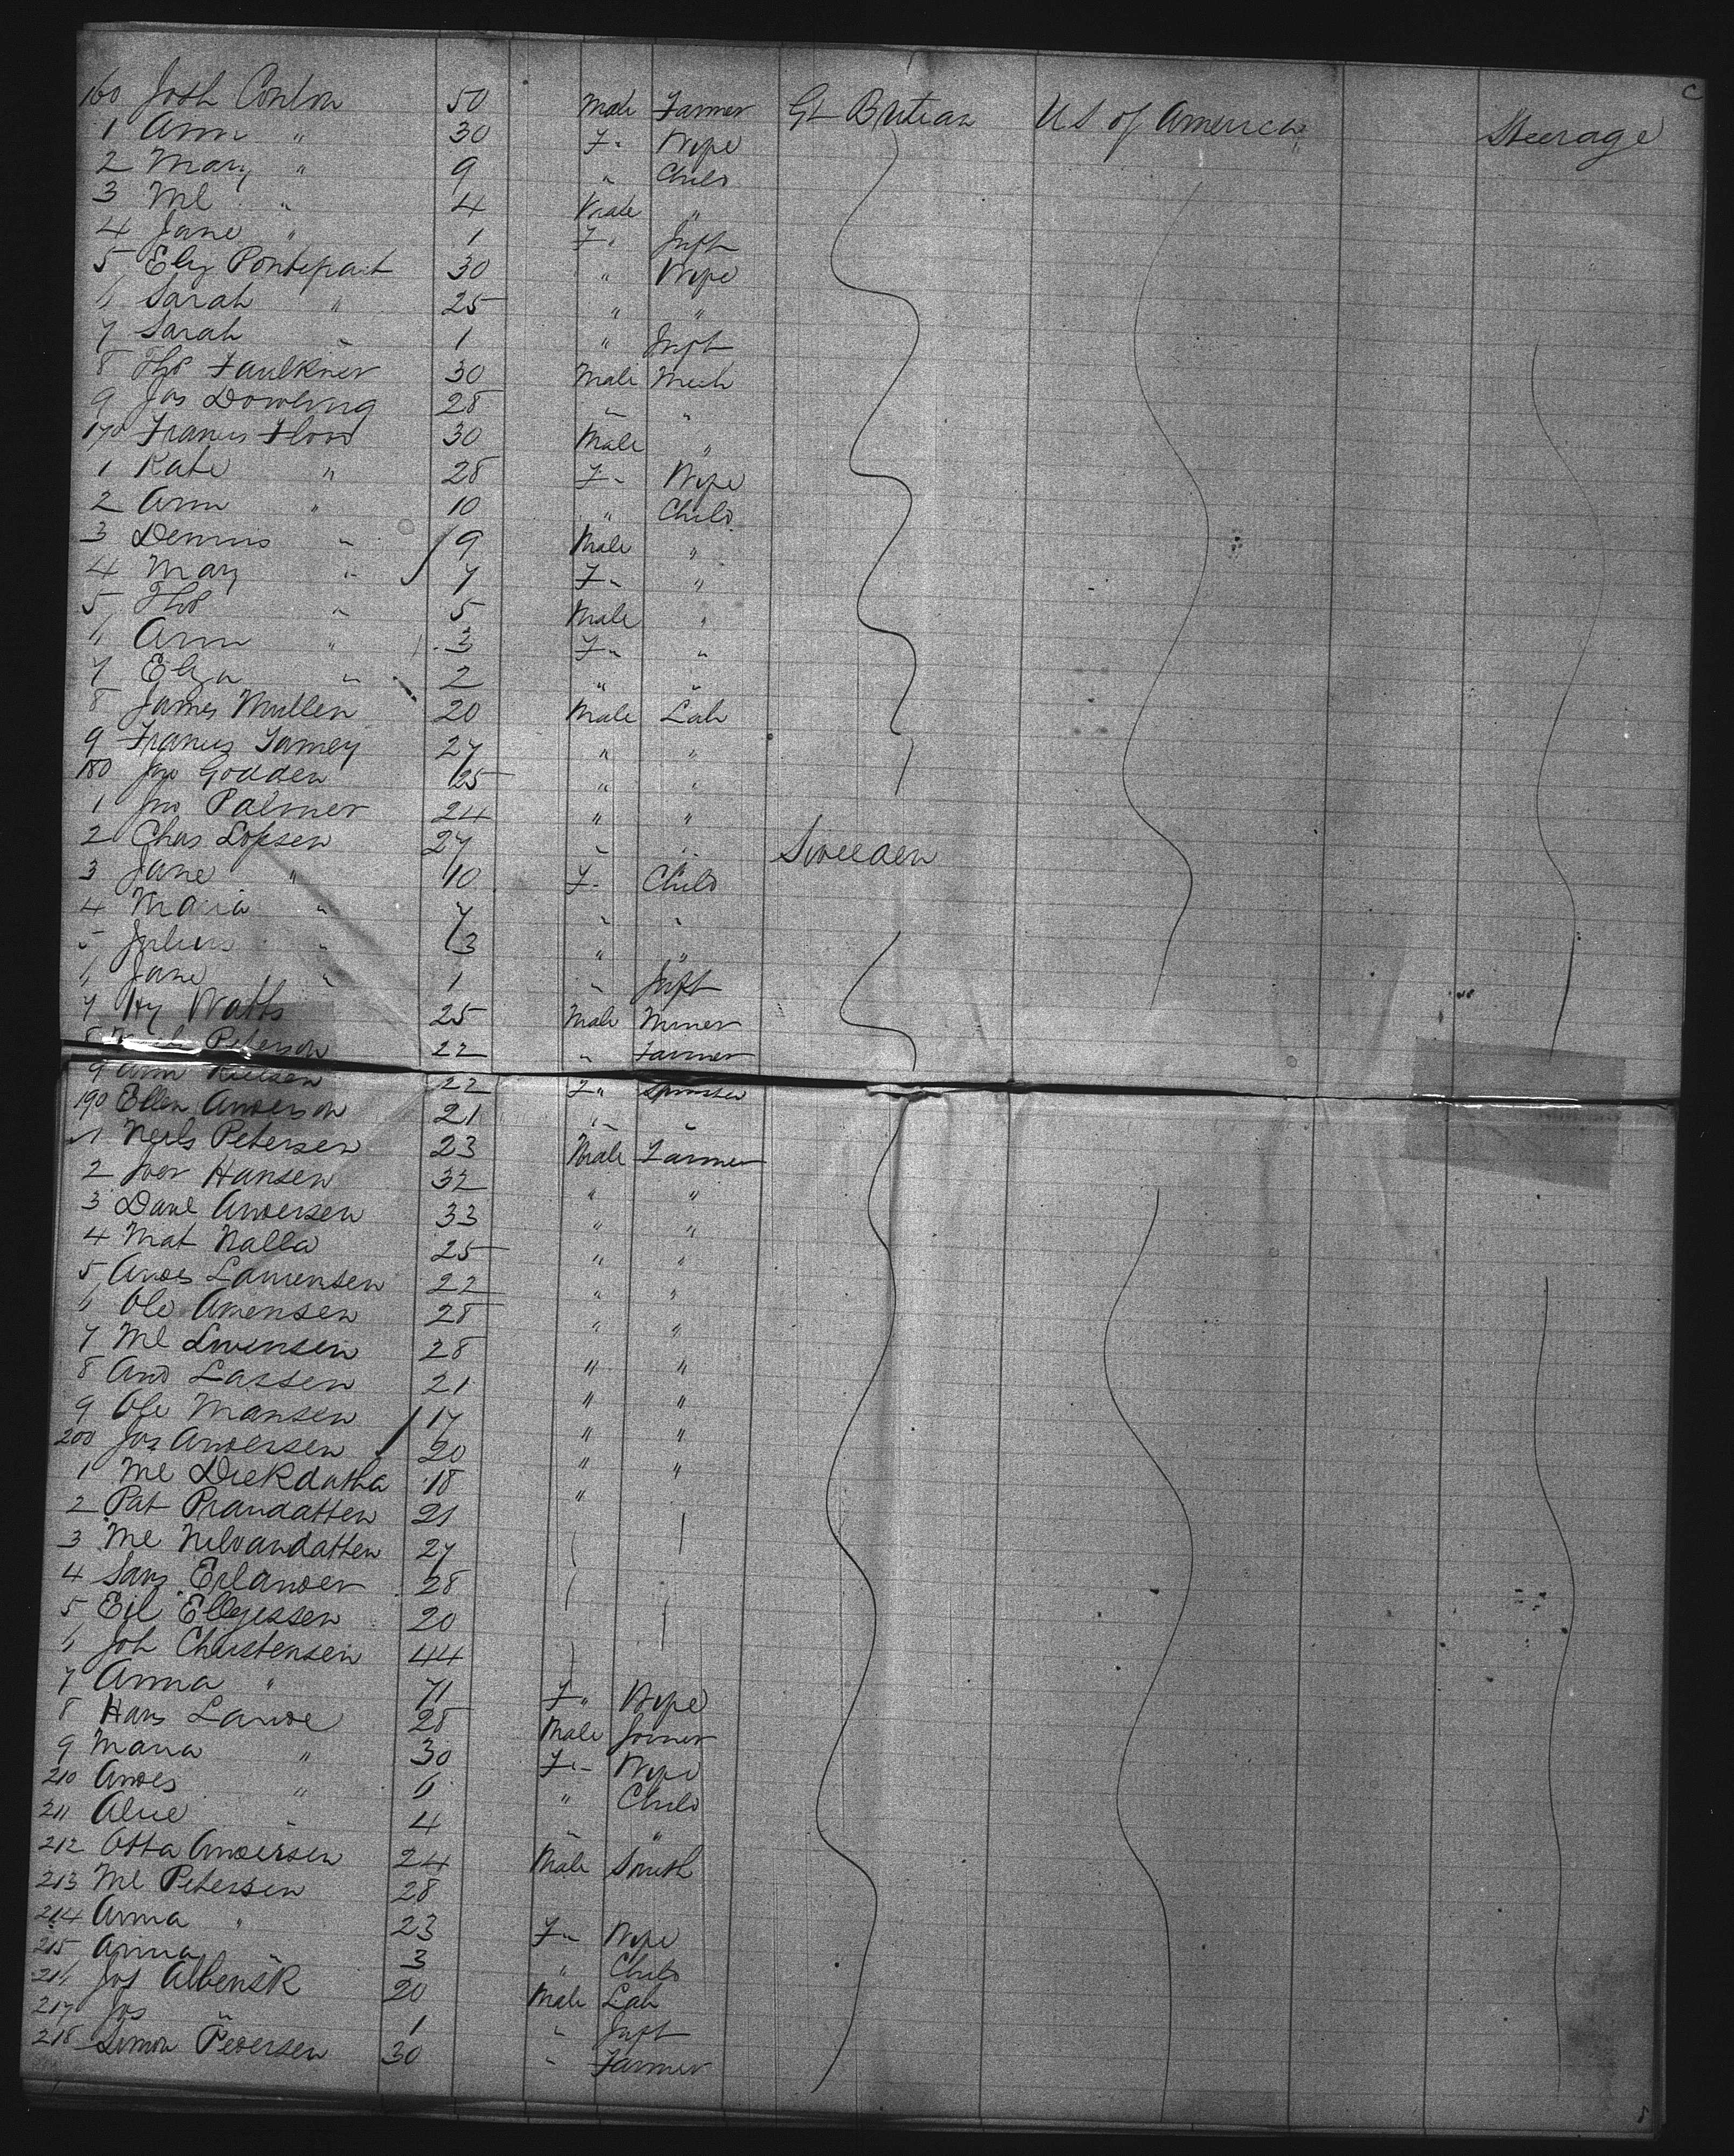 160 Josh Conlon 50 Male Farmer Gt Britian US of America Steerage
1 Ann " 30 F " Wife
2 Mary " 9 " Child
3 Ml " 4 Male "
4 Jane " 1 F " Inft
5 Eliz 30 " Wife
6 Sarah " 25 " "
7 Sarah " 1 " Inft
8 Thos Faulkner 30 Male Mech
9 Jas Dowling 28 " "
170 Francis Flood 30 Male "
1 Kate " 28 F " Wife
2 Ann " 10 " Child
3 Dennis " 9 Male "
4 Mary " 7 F " "
5 Thos " 5 Male "
6 Ann " 3 F " "
7 Eliza " 2 " "
8 James Mullen 20 Male Lab
9 Francis 27 " "
180 Jno Godden 25 " "
1 Jno Palmer 24 " "
2 Chas Lopsen 27 " " Sweeden
3 Jane " 10 F " Child
4 Maria " 7 " "
5 Julius " 3 " "
6 Jane " 1 " Inft
7 Hy Watts 25 Male Miner
8 Peterson 22 " Farmer
9 Ann 22 F " Spinster
190 Ellen Anderson 21 " "
1 Neils Petersen 23 Male Farmer
2 Iver Hansen 32 " "
3 Danl Andersen 33 " "
4 Mat Nalla 25 " "
5 Andes Laurensen 22 " "
6 Ole Amensen 28 " "
7 Ml Swensen 28 " "
8 And Lassen 21 " "
9 Ole Mansen 17 " "
200 Jos Andersen 20 " "
1 Ml Diekdatha 18 "
2 Pat Prandatten 21
3 Ml Nilvandatten 27
4 Sans Erlander 28
5 Eil Ellgessen 20
6 Joh Christensen 44
7 Anna " 71 F " Wife
8 Hans Lande 28 Male Joiner
9 Maria " 30 F " Wife
210 Andes " 6 " Child
211 Alice " 4 " "
212 Otta Andersen 24 Male Smith
213 Ml Petersen 28
214 Anna " 23 F " Wife
215 Anna " 3 " Child
216 Jos Albensk 20 Male Lab
217 Jos " 1 " Inft
218 Simon Pedersen 30 " Farmer